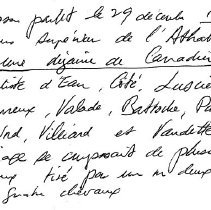 partit le 29 décembre
supérieur de l'Athab
une dizaine de Canadien
Baptiste d'Eau, Côté, Lusci
reux, Valade, Battoche, Pa
ord, Villiard et Vaudette
age se composant de plusi
ux tiré par un ou deux
quatre chevaux